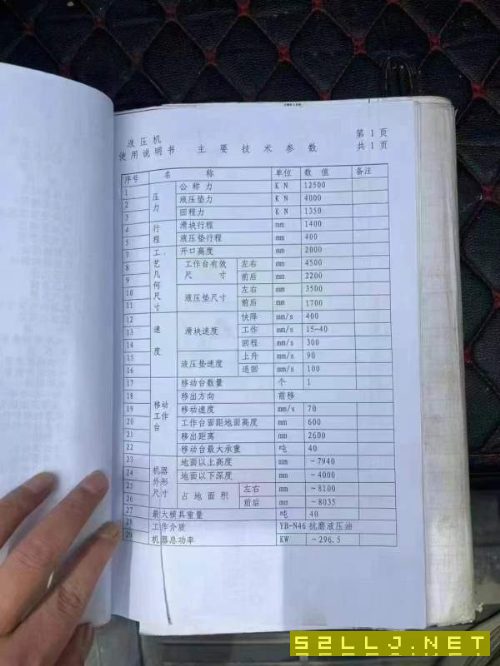 液压机
使用说明书 主要技术参数
第1页
共1页
序号 名称 单位 数值 备注
1 压力 公称力 KN 12500
2 液压垫力 KN 4000
3 回程力 KN 1350
4 行程 滑块行程 mm 1400
5 液压垫行程 mm 400
7 工艺几何尺寸 开口高度 mm 2000
8 工作台有效尺寸 左右 mm 4500
9 前后 mm 2200
10 液压垫尺寸 左右 mm 3500
11 前后 mm 1700
12 速度 滑块速度 快降 mm/s 400
13 工作 mm/s 15-40
14 回程 mm/s 300
15 液压垫速度 上升 mm/s 90
16 退回 mm/s 100
17 移动工作台 移动台数量 个 1
18 移出方向 前移
19 移动速度 mm/s 70
20 工作台面距地面高度 mm 600
21 移出距离 mm 2600
22 移动台最大承重 吨 40
23 机器外形尺寸 地面以上高度 mm ~7940
24 地面以下深度 mm ~4000
25 占地面积 左右 mm ~8100
26 前后 mm ~8035
27 最大模具重量 吨 40
28 工作介质 YB-N46 抗磨液压油
29 机器总功率 KW ~296.5
52LLJ.NET